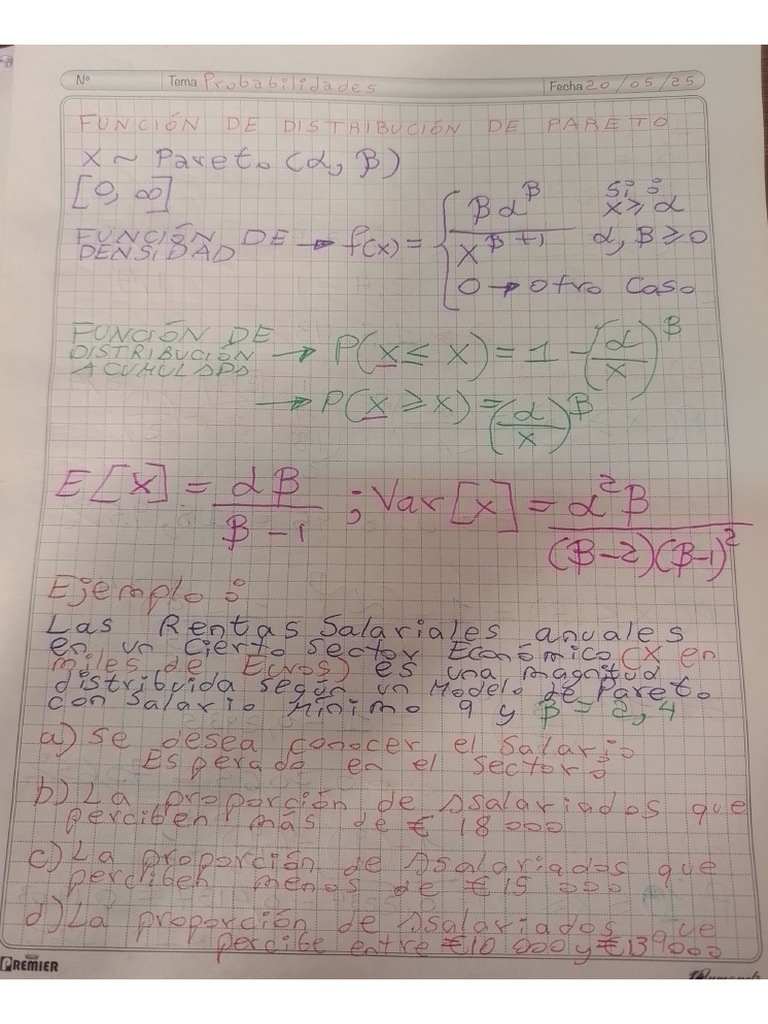 Nº Tema Probabilidades Fecha 20/05/25
FUNCIÓN DE DISTRIBUCIÓN DE PARETO
X ~ Pareto (α, β)
[0, ∞]
FUNCIÓN DE DENSIDAD → f(x) = { βα^β / x^(β+1) Si: x ≥ α α, β ≥ 0
0 → otro caso
FUNCIÓN DE
DISTRIBUCIÓN → P(x ≤ x) = 1 - (α/x)^β
ACUMULADA
→ P(x ≥ x) = (α/x)^β
E[x] = αβ / (β - 1) ; Var[x] = α²β / (β-2)(β-1)²
Ejemplo:
Las Rentas Salariales anuales
en un cierto sector Económico (X en
miles de Euros) es una magnitud
distribuida según un Modelo de Pareto
con salario mínimo 9 y β = 2,4
a) Se desea conocer el salario
Esperado en el sector:
b) La proporción de Asalariados que
perciben más de € 18 000
c) La proporción de Asalariados que
perciben menos de € 15 000
d) La proporción de Asalariados que
percibe entre €10 000 y
PREMIER